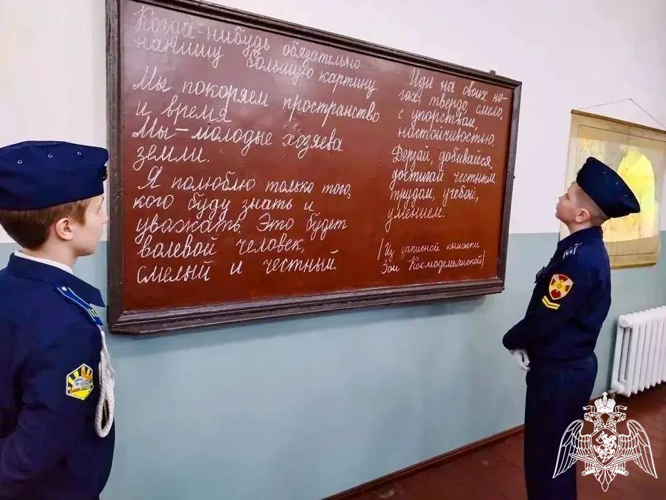 Когда-нибудь обязательно
напишу большую картину
Мы покоряем пространство
и время
Мы - молодые хозяева
земли.
Я полюблю только того,
кого буду знать и
уважать. Это будет
волевой человек,
смелый и честный.
Иди на своих но-
гах твердо, смело,
с упорством,
настойчивостью.
Дерзай, добивайся
достигай честным
трудом, учебой,
умением.
/Из записной книжки
Зои Космодемьянской/